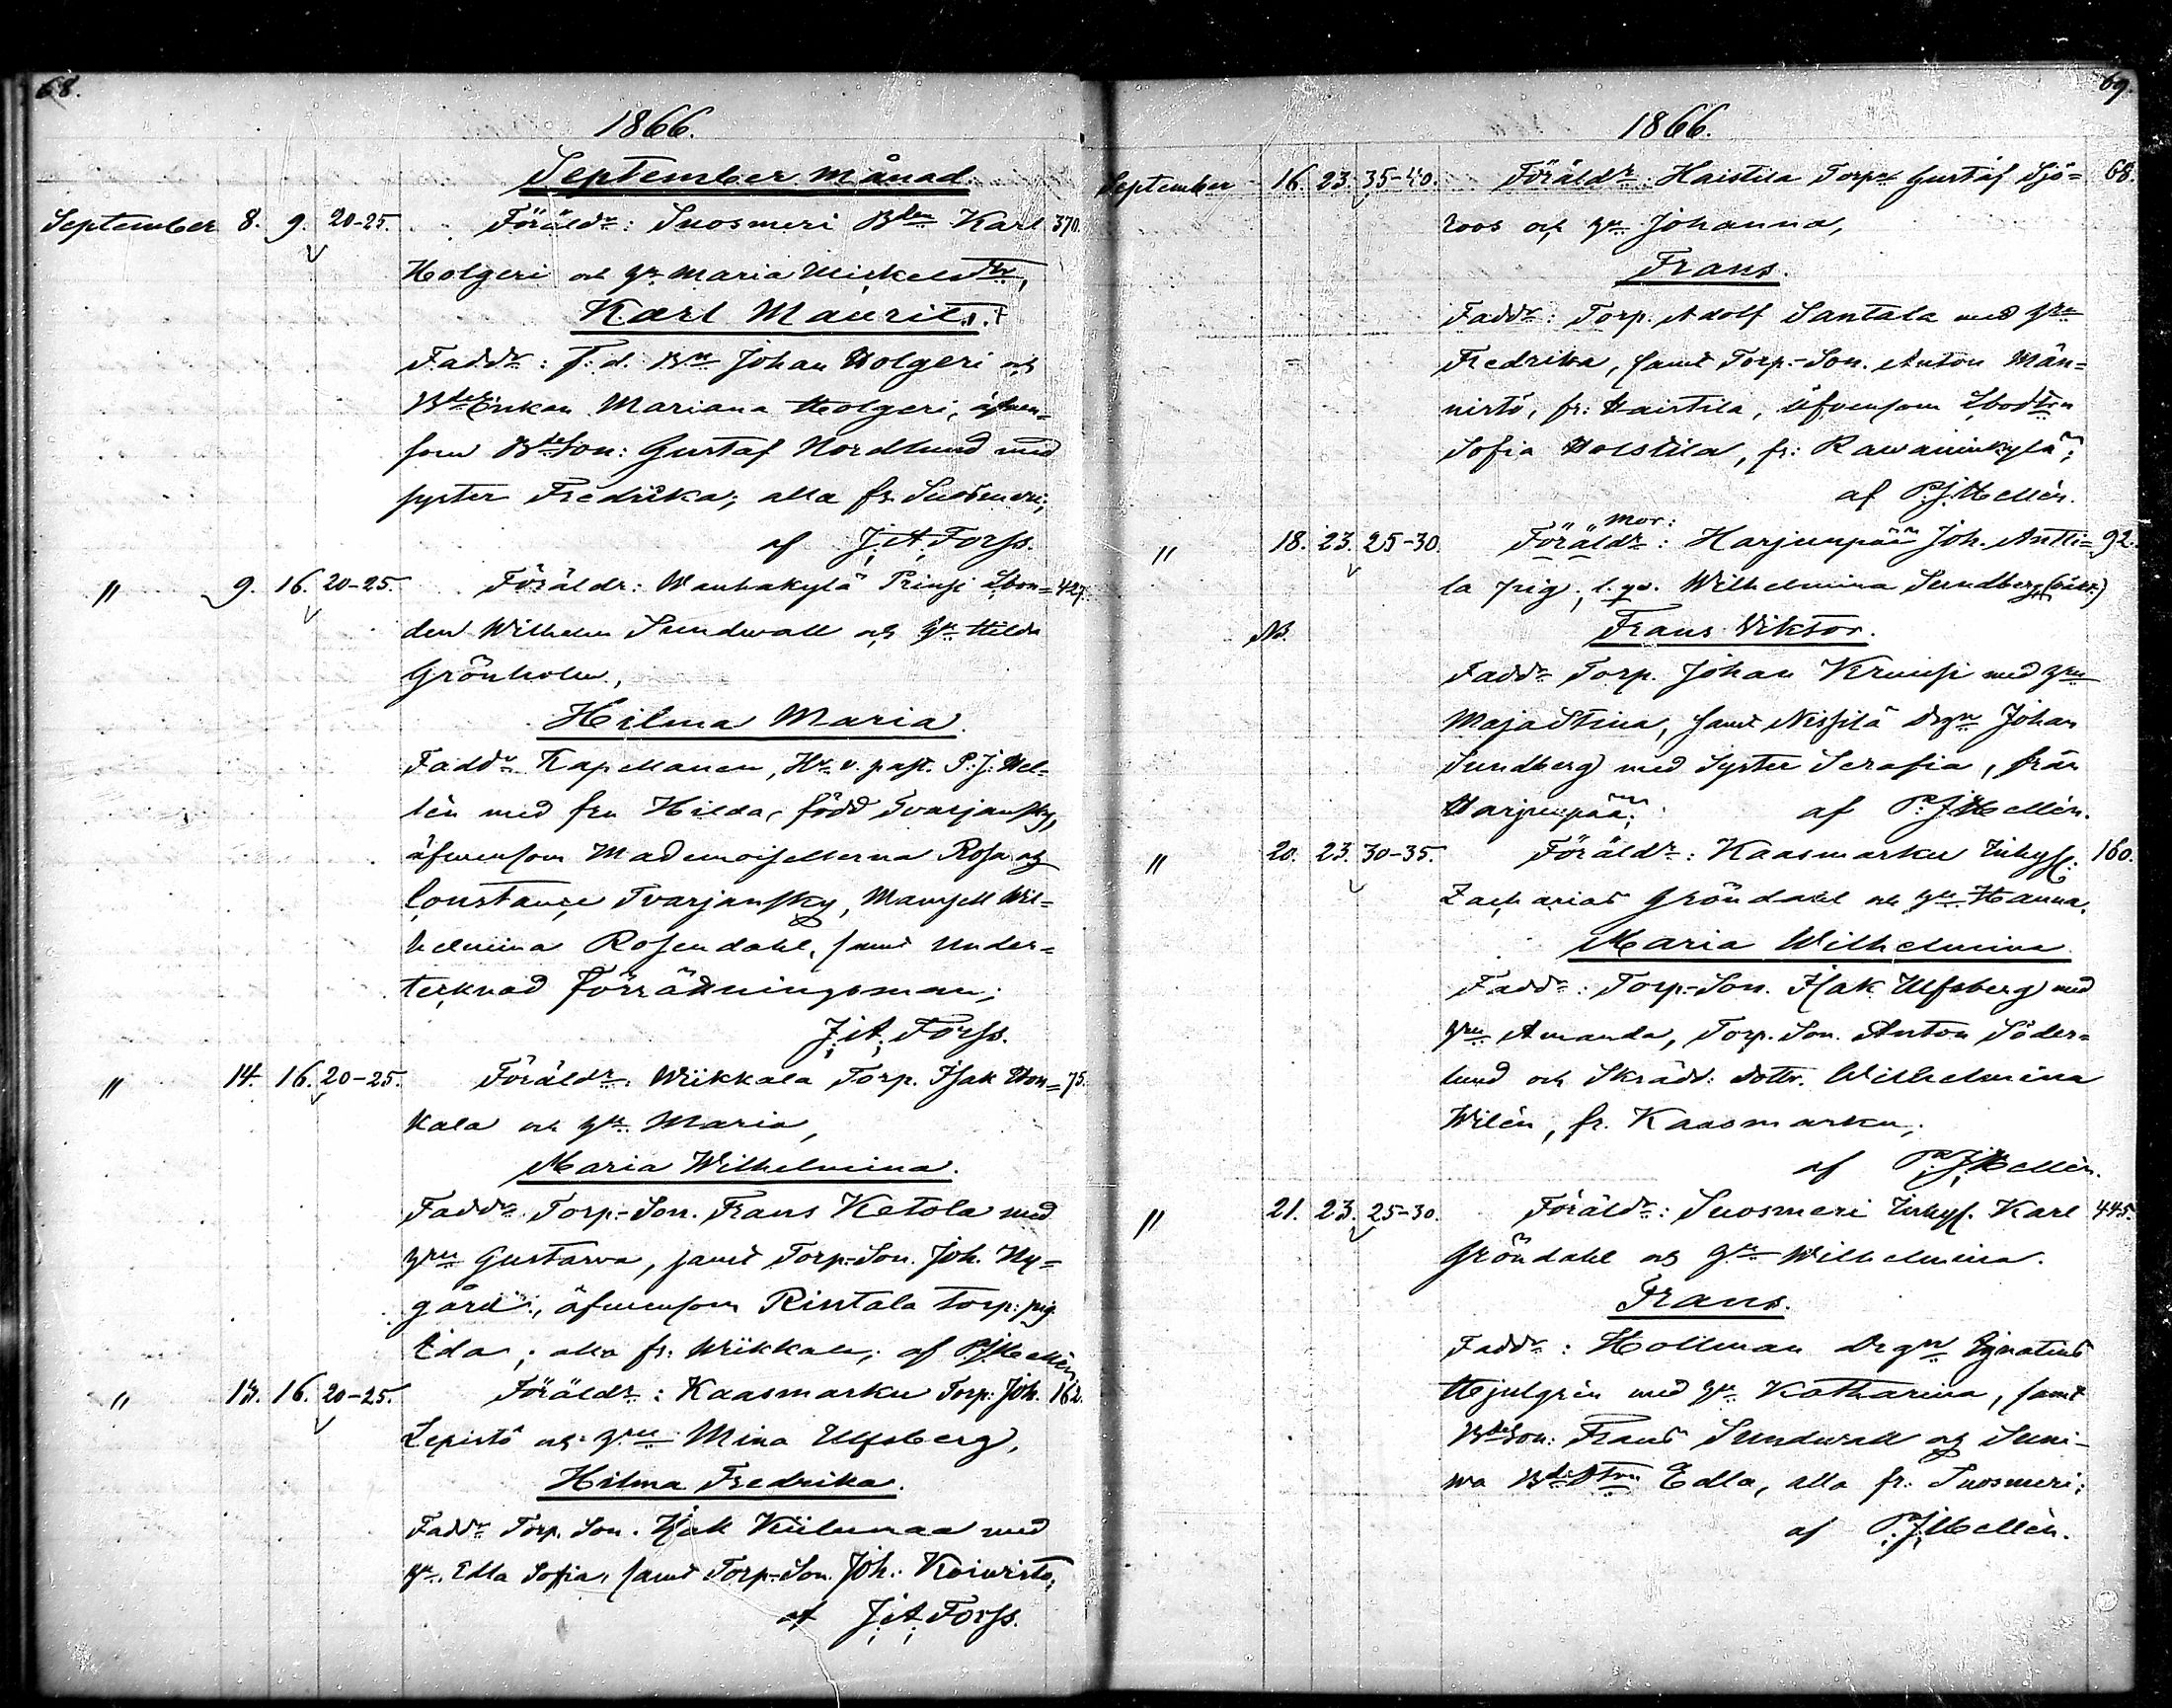 68.
1866.
September månad.
September 8. 9. 20-25. Föräldr: Suosmeri Bden Karl 370.
Holgeri och h. Maria Mickelsdtr,
Karl Maurits. †
Faddr: f. d. Bn Johan Holgeri och
Bde Enkan Mariana Holgeri, äfven-
som Bdeson: Gustaf Nordlund med
syster Fredrika; alla fr. Suosmeri;
af J. A. Forss.
" 9. 16. 20-25. Föräldr: Wanhakylä Prinsi Lbon= 427.
den Wilhelm Sundwall och h. Hilda
Grönholm,
Hilma Maria.
Faddr Kapellanen, Hr v. past. P. J. Hel-
lén med fru Hilda, född Tvarjansky,
äfvensom Mademoisellerna Rosa och
Constance Tvarjansky, Mamsell Wil-
helmina Rosendahl, samt under-
tecknad förrättningsman;
J. A. Forss.
" 14. 16. 20-25. Föräldr: Wiikkala Torp. Isak Hon= 75.
kala och h. Maria,
Maria Wilhelmina.
Faddr Torp.-Son. Frans Ketola med
hru Gustava, samt Torp.-Son. Joh. Ny=
gård, äfvensom Rintala torp: pig.
Eda; alla fr: Wiikkala; af P. J. Hellén
" 15. 16. 20-25. Föräldr: Kaasmarku Torp: Joh. 162.
Lepistö och hru Mina Ulfsberg,
Hilma Fredrika.
Faddr Torp. Son. Isak Kiilunmaa med
h. Edla Sofia, samt Torp-Son Joh. Koivisto;
af J. A. Forss.
69.
1866.
September 16. 23. 35-40. Föräldr Haistila Torpn Gustaf Sjö= 68.
roos och h. Johanna,
Frans.
Faddr: Torp. Adolf Santala med hru
Fredrika, samt Torp.-Son. Anton Män=
nistö, fr: Haistila, äfvensom Lbodtrn
Sofia Holstila, fr: Rawaninkylä;
af P. J. Hellén.
mor:
" 18. 23. 25-30. Föräldr: Harjunpää Joh. Antti= 92.
la pig., l. qv. Wilhelmina Sundberg
NB. Frans Viktor.
Faddr Torp. Johan Kruusi med hru
Maja Stina, samt Nissilä drgn Johan
Sundberg med Syster Serafia, från
Harjunpää; af P. J. Hellén.
" 20. 23. 30-35. Föräldr: Kaasmarku Inhys: 160.
Zacharias Gröndahl och h. Hanna.
Maria Wilhelmina
Faddr: Torp.-Son. Isak Ulfsberg med
hru Amanda, Torp. Son. Anton Söder=
lund och Skrädd: dottr. Wilhelmina
Wilén, fr. Kaasmarku;
af P. J. Hellén.
" 21. 23. 25-30. Föräldr: Suosmeri Inhys. Karl 445.
Gröndahl och h. Wilhelmina.
Frans.
Faddr: Hollman Drgn Ignatius
Hjulgrén med h. Katharina, samt
Bdeson: Frans Sundwall och Suni-
wa Bde Dtrn Edla, alla fr. Suosmeri;
af P. J. Hellén.